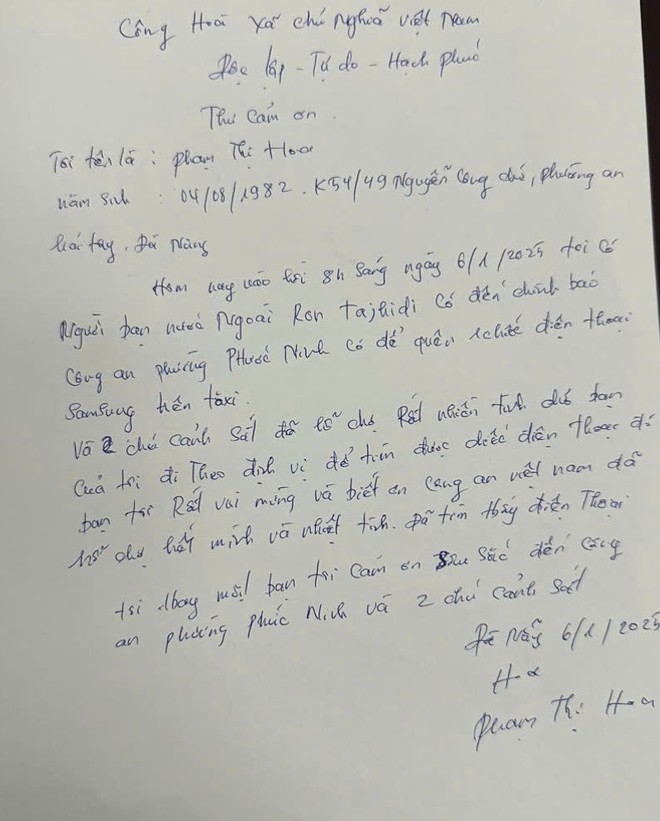 Công Hoà xã chủ Nghĩa việt Nam
Độc lập - Tự do - Hạch phúc
Thư cảm ơn.
Tôi tên là : phạm Thị Hoa
năm sinh : 04/08/1982. K54/49 Nguyễn Công chứ, phường an
hải tây, Đà Nẵng
Hôm nay vào lúc 8h sáng ngày 6/1/2025 tôi có
Người bạn nước Ngoài Ron Tajhidi có đến chình báo
Công an phường Phước Ninh có để quên 1 chiếc điện thoại
Samsung trên taxi.
Và 2 chú cảnh sát đã hỗ chợ Rất nhiền tình chớ bạn
Của tôi đi Theo định vị để tìm được chiếc điện thoại đó
bạn tôi Rất vui mừng và biết ơn công an việt nam đã
hỗ chợ hết mình và nhiệt tình. Đã tìm thấy điện Thoại
tôi thay mặt bạn tôi cảm ơn sâu sắc đến công
an phường phước Ninh và 2 chú cảnh sát
Đà Nẵng 6/1/2025
Hoa
phạm Thị Hoa